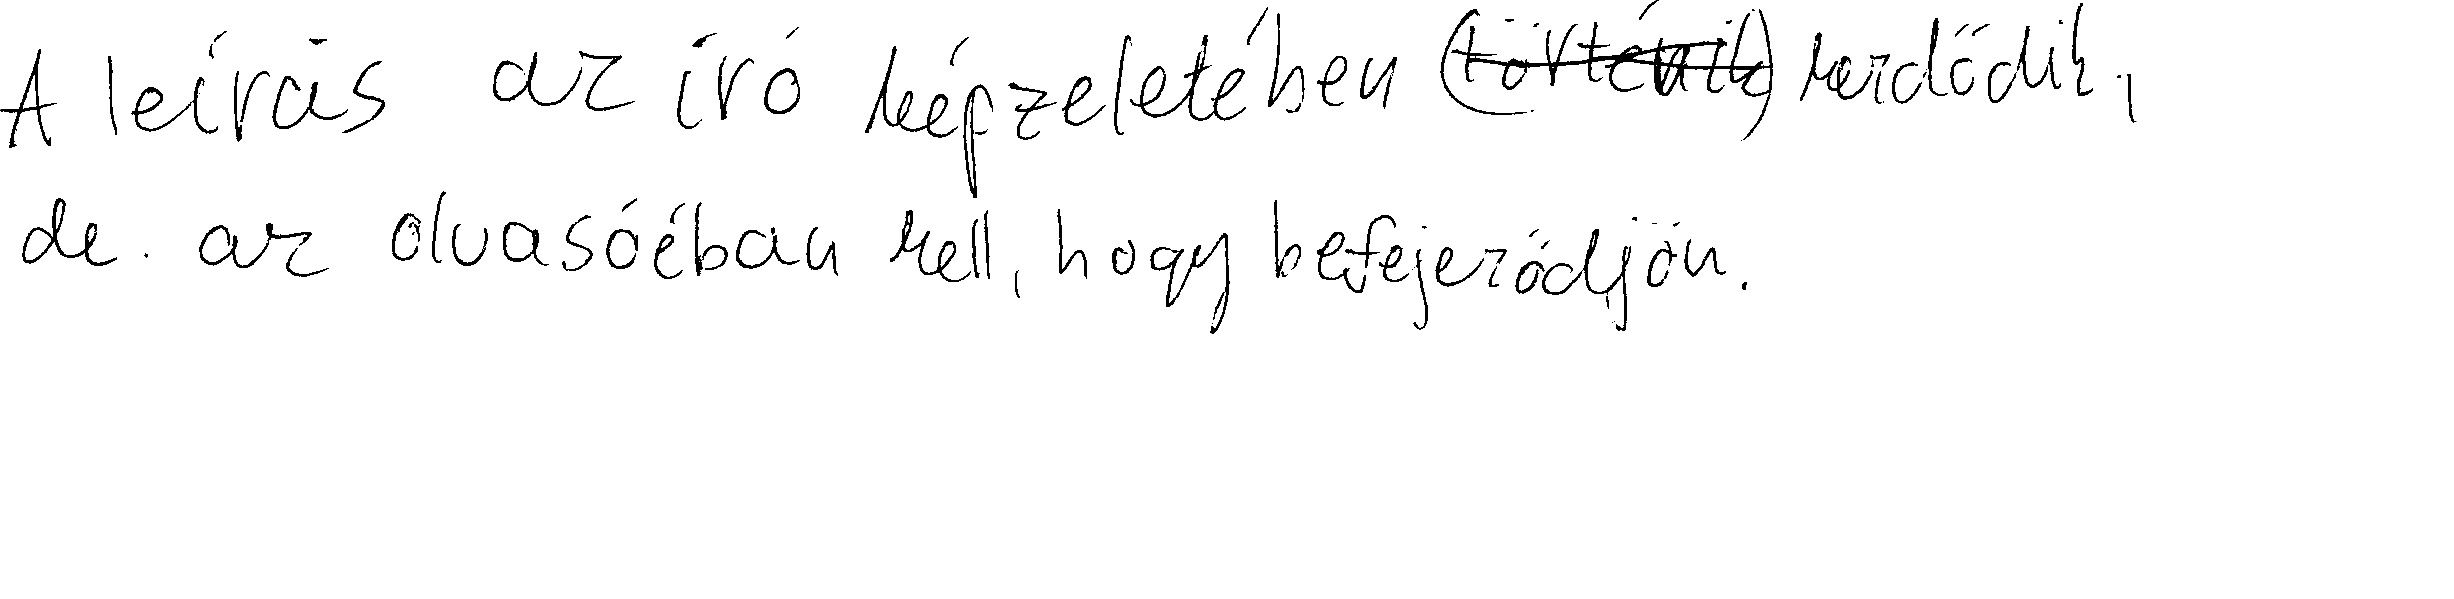 A leírás az író képzeletében (történik) kezdődik,
de az olvasóéban kell, hogy befejeződjön.